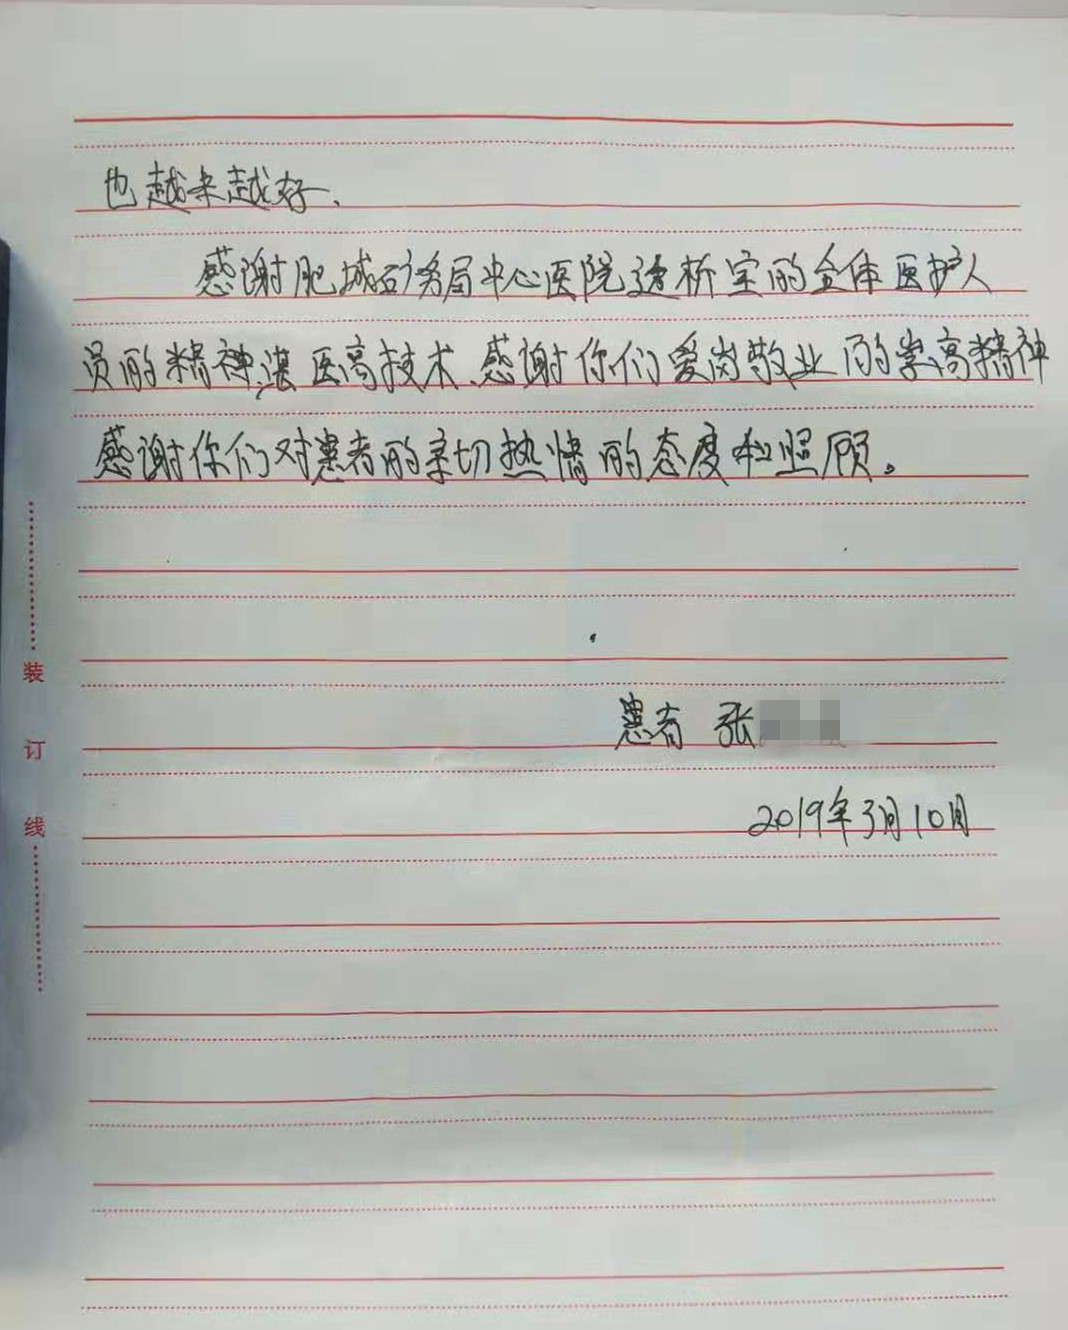 也越来越好、
感谢肥城矿务局中心医院透析室的全体医护人
员的精神,湛医高技术、感谢你们爱岗敬业的崇高精神
感谢你们对患者的亲切热情的态度和照顾。
患者 张
2019年3月10日
装
订
线